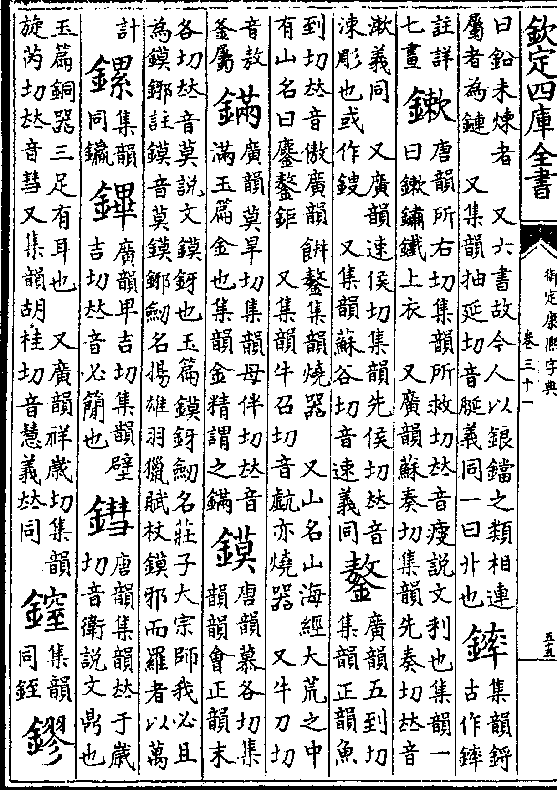 欽定四庫全書
御定康熙字典
卷三十一
五五
曰鉛未煉者 又六書故今人以鋃鐺之類相連
屬者為鏈 又集韻抽延切音脠義同一曰丱也 鏲 集韻鍀
古作鏲
註詳
七畫 鏉 唐韻所右切集韻所救切𠀤音瘦說文利也集韻一
曰鏉鏽鐵上衣 又廣韻蘇奏切集韻先奏切𠀤音
漱義同 又廣韻速侯切集韻先侯切𠀤音
涑彫也或作鎪 又集韻蘇谷切音速義同 鏊 廣韻五到切
集韻正韻魚
到切𠀤音傲廣韻餅鏊集韻燒器 又山名山海經大荒之中
有山名曰鏖鏊鉅 又集韻牛召切音虤亦燒器 又牛刀切
音敖
釜屬 鏋 廣韻莫旱切集韻母伴切𠀤音
滿玉篇金也集韻金精謂之鏋 鏌 唐韻慕各切集
韻韻會正韻末
各切𠀤音莫說文鏌釾也玉篇鏌釾劒名莊子大宗師我必且
為鏌鋣註鏌音莫鏌鋣劒名揚雄羽獵賦杖鏌邪而羅者以萬
計 鏍 集韻
同鑘 鏎 廣韻卑吉切集韻壁
吉切𠀤音必簡也 鏏 唐韻集韻𠀤于歲
切音衛說文鼎也
玉篇銅器三足有耳也 又廣韻祥歲切集韻
旋芮切𠀤音彗又集韻胡桂切音慧義𠀤同 鏳 集韻
同銍 鏐